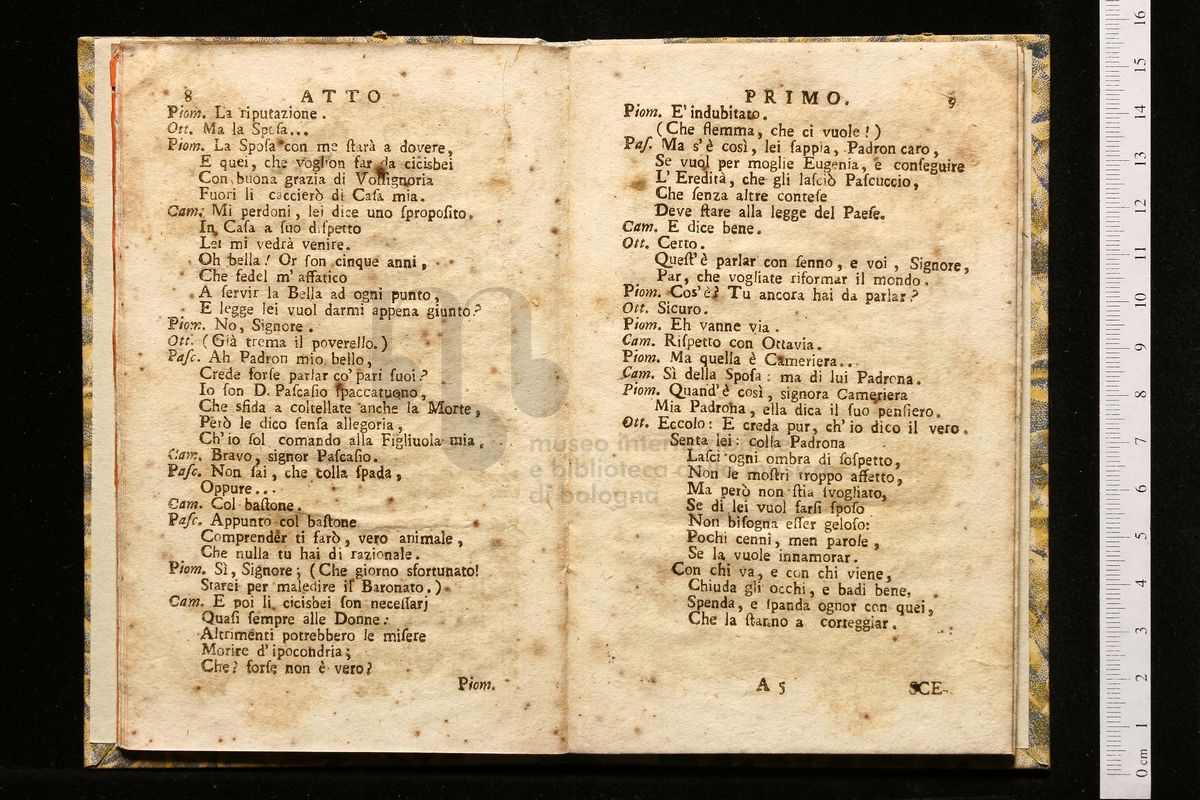 8 ATTO
Piom. La riputazione.
Ott. Ma la Spoſa...
Piom. La Spoſa con me ſtarà a dovere,
E quei, che voglion far da cicisbei
Con buona grazia di Voſſignoria
Fuori li caccierò di Caſa mia.
Cam. Mi perdoni, lei dice uno ſpropoſito.
In Caſa a ſuo diſpetto
Lei mi vedrà venire.
Oh bella! Or ſon cinque anni,
Che fedel m' affatico
A ſervir la Bella ad ogni punto,
E legge lei vuol darmi appena giunto?
Piom. No, Signore.
Ott. (Già trema il poverello.)
Paſc. Ah Padron mio bello,
Crede forſe parlar co' pari ſuoi?
Io ſon D. Paſcaſio ſpaccatuono,
Che sfida a coltellate anche la Morte,
Però le dico ſenſa allegoria,
Ch' io ſol comando alla Figliuola mia.
Cam. Bravo, signor Paſcaſio.
Paſc. Non ſai, che colla ſpada,
Oppure...
Cam. Col baſtone.
Paſc. Appunto col baſtone
Comprender ti farò, vero animale,
Che nulla tu hai di razionale.
Piom. Sì, Signore; (Che giorno sfortunato!
Starei per maledire il Baronato.)
Cam. E poi li cicisbei ſon neceſſarj
Quaſi ſempre alle Donne:
Altrimenti potrebbero le miſere
Morire d' ipocondria;
Che? forſe non è vero?
Piom.
PRIMO. 9
Piom. E' indubitato.
(Che flemma, che ci vuole!)
Paſ. Ma s' è così, lei ſappia, Padron caro,
Se vuol per moglie Eugenia, e conſeguire
L' Eredità, che gli laſciò Paſcuccio,
Che ſenza altre conteſe
Deve ſtare alla legge del Paeſe.
Cam. E dice bene.
Ott. Certo.
Queſt' è parlar con ſenno, e voi, Signore,
Par, che vogliate riformar il mondo.
Piom. Cos' è? Tu ancora hai da parlar?
Ott. Sicuro.
Piom. Eh vanne via.
Cam. Riſpetto con Ottavia.
Piom. Ma quella è Cameriera...
Cam. Sì della Spoſa: ma di lui Padrona.
Piom. Quand' è così, signora Cameriera
Mia Padrona, ella dica il ſuo penſiero.
Ott. Eccolo: E creda pur, ch' io dico il vero.
Senta lei: colla Padrona
Laſci ogni ombra di ſoſpetto,
Non le moſtri troppo affetto,
Ma però non ſtia ſvogliato,
Se di lei vuol farſi ſpoſo
Non biſogna eſſer geloſo:
Pochi cenni, men parole,
Se la vuole innamorar.
Con chi va, e con chi viene,
Chiuda gli occhi, e badi bene,
Spenda, e ſpanda ognor con quei,
Che la ſtanno a corteggiar.
A 5 SCE-
museo
e biblioteca
di bologna
0 cm 1 2 3 4 5 6 7 8 9 10 11 12 13 14 15 16